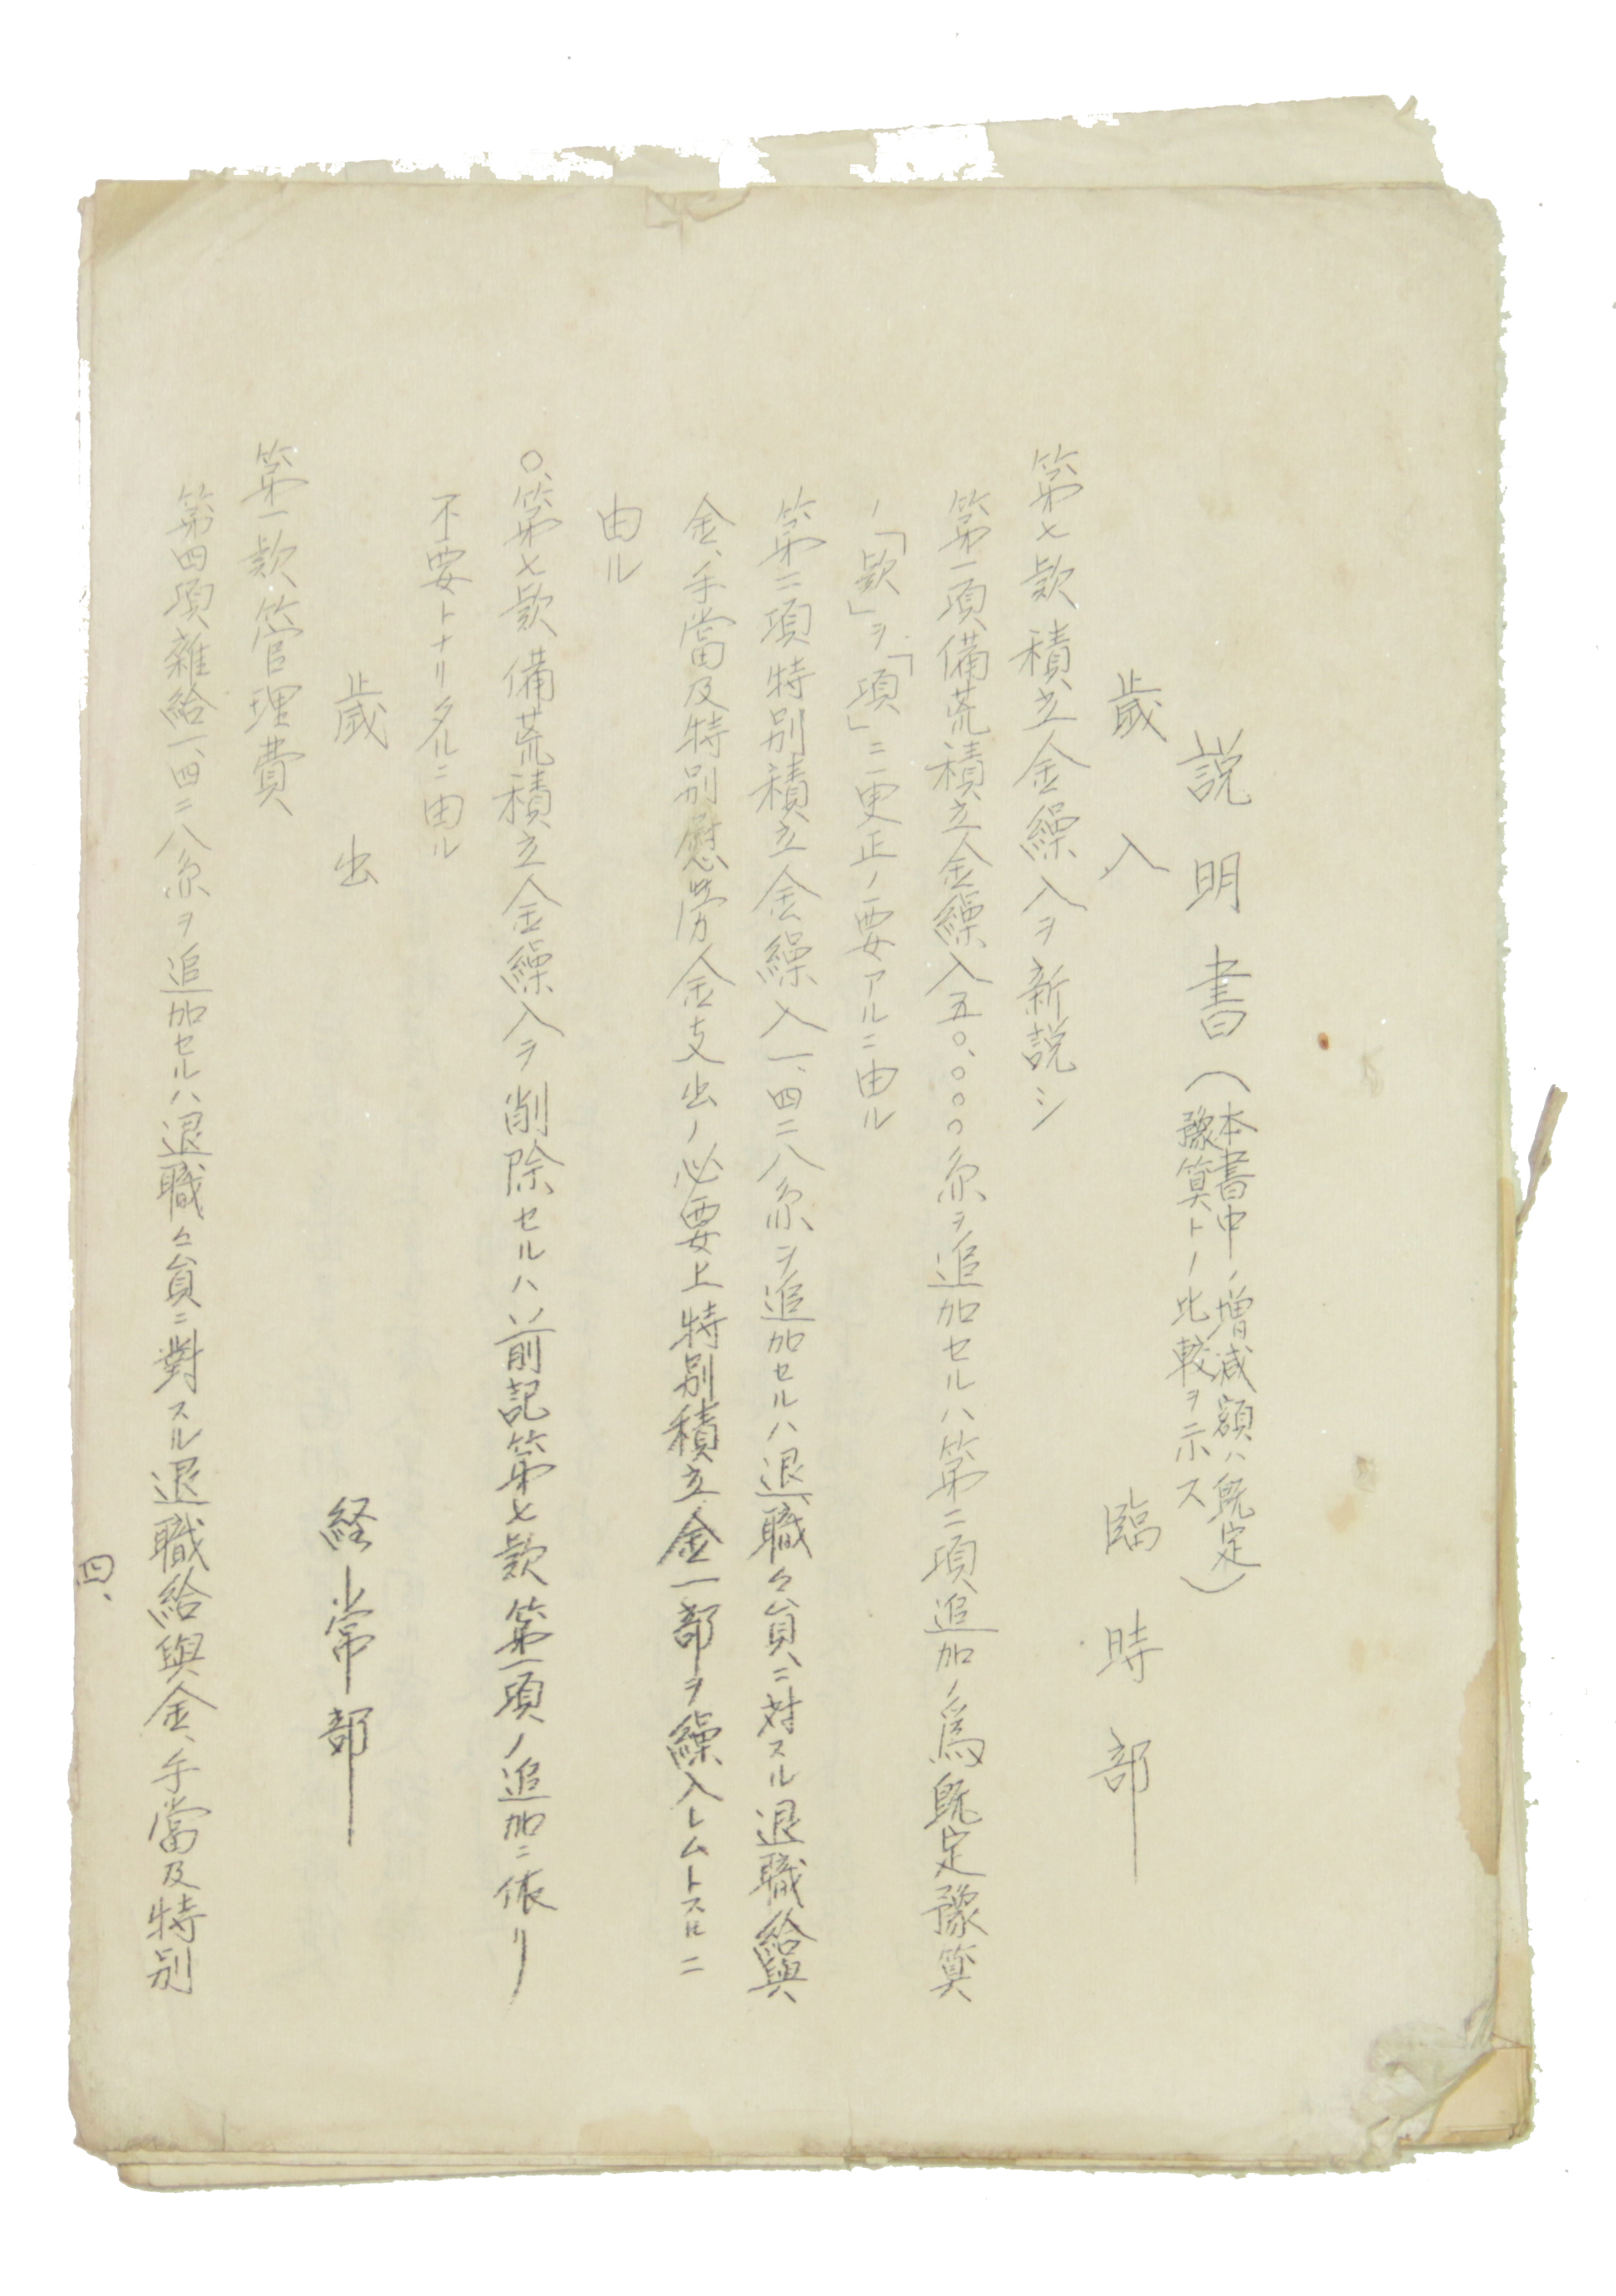 説明書(本書中ノ増減額ハ既定
豫算トノ比較ヲ示ス)
歳入　臨時部
第七款積立金繰入ヲ新説シ
第一項備荒積立金繰入五〇、〇〇〇円ヲ追加セルハ第二項追加ノ為既定豫算
ノ「款」ヲ「項」ニ更正ノ要アルニ由ル
第二項特別積立金繰入一、四二八円ヲ追加セルハ退職々員ニ対スル退職給與
金、手當及特別慰労金支出ノ必要上特別積立金一部ヲ繰入レムトスルニ
由ル
〇、第七款備荒積立金繰入ヲ削除セルハ前記第七款第一項ノ追加ニ依リ
不要トナリタルニ由ル
歳出　経常部
第一款管理費
第四項雑給一、四二八円ヲ追加セルハ退職々員ニ對スル退職給與金、手當及特別
四、